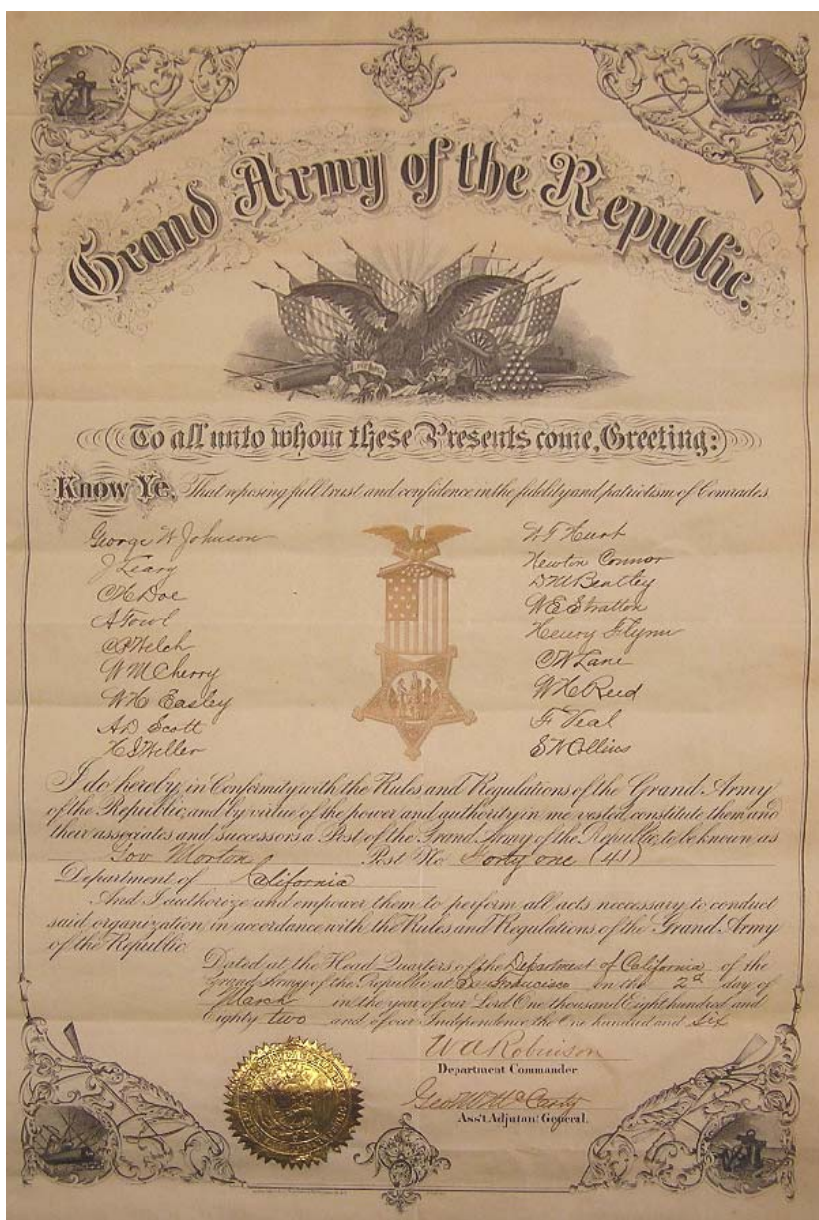 Grand Army of the Republic.
To all unto whom these Presents come, Greeting:
Know Ye, That reposing full trust and confidence in the fidelity and patriotism of Comrades
George W Johnson
J Leary
C H Doe
A Fowl
C P Welch
W M Cherry
W H Easley
A D Scott
H S Weller
W T Hurt
Newton Connor
D M Bentley
W E Stratton
Henry Flynn
C W Lane
W H Reed
F Veal
S W Collins
I do hereby, in Conformity with the Rules and Regulations of the Grand Army
of the Republic, and by virtue of the power and authority in me vested, constitute them and
their associates and successors a Post of the Grand Army of the Republic, to be known as
Gov Morton Post No Forty one (41)
Department of California
And I authorize and empower them to perform all acts necessary to conduct
said organization in accordance with the Rules and Regulations of the Grand Army
of the Republic.
Dated at the Head Quarters of the Department of California of the
Grand Army of the Republic at San Francisco on the 2d day of
March in the year of our Lord One thousand Eight hundred and
Eighty two and of our Independence the One hundred and Six
W A Robinson
Department Commander
Geo W McCarty
Ass't Adjutant General.